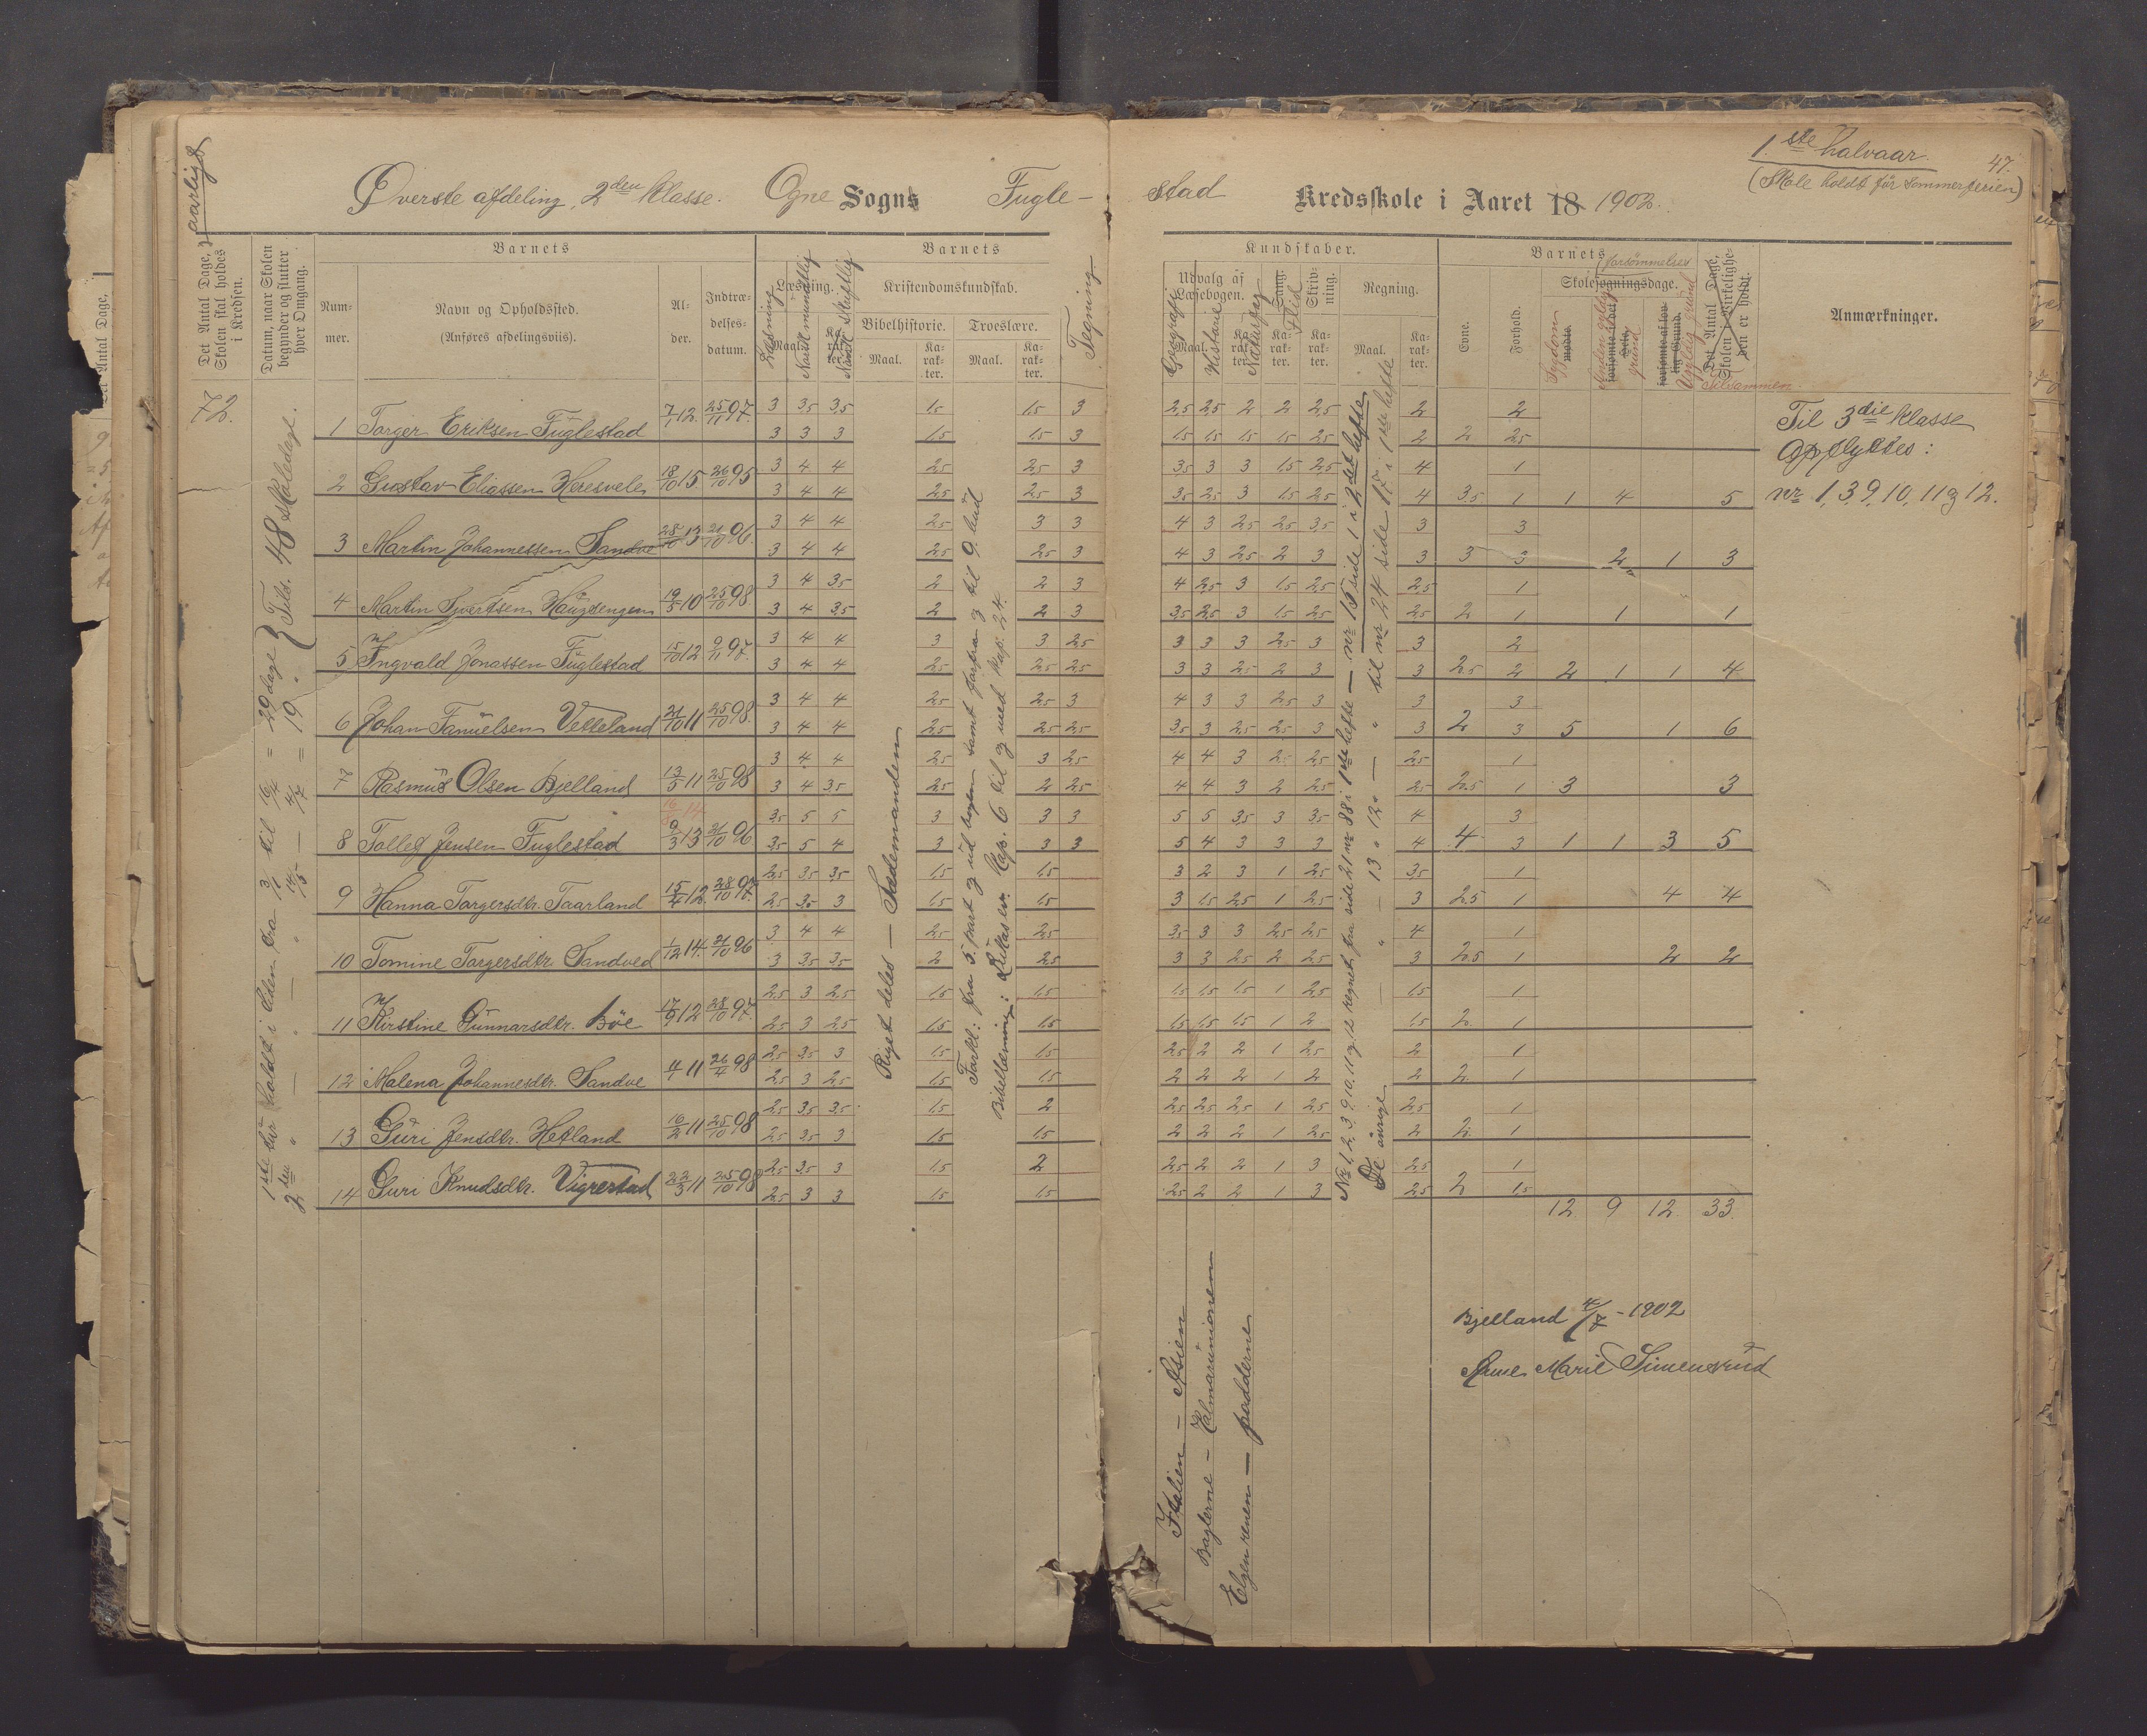 1ste halvaar.
47.
(Skole holdt før sommerferien)
Øverste afdeling, 2den klasse. Ogne Sogns Fugle-
stad Kredsskole i Aaret 18 1902.
aarligt
Det Antal Dage, Skolen skal holdes i Kredsen.
Datum, naar Skolen begynder og slutter hver Omgang.
Barnets
Nummer.
Navn og Opholdssted.
(Anføres afdelingsviis).
Alder.
Indtrædelsesdatum.
Barnets
Læsning.
Maal.
Læsning
Norsk mundtlig
Norsk skriftlig
Kristendomskundskab.
Bibelhistorie.
Maal.
Karakter.
Troeslære.
Maal.
Karakter.
Tegning
Kundskaber.
Udvalg af Læsebogen.
Maal.
Karakter.
Geografi
Historie
Naturfag
Sang.
Flid
Karakter.
Skrivning.
Karakter.
Regning.
Maal.
Karakter.
Barnets
Evne.
Forhold.
Skolesøgningsdage.
forsømmelser
mødte.
Sygdom
Anden gyldig grund
forsømte af lovlig Grund.
Ugyldig grund
Det Antal Dage, Skolen i Virkeligheden er holdt.
Tilsammen.
Anmærkninger.
72.
1 Torger Eriksen Fuglestad 7/1 12. 25/11 97. 3 3,5 3,5 1,5 1,5 3 2,5 2,5 2 2 2,5 2 2
3 3 3 1,5 1,5 3 1,5 1,5 1,5 1,5 2,5 2 2 2,5
2 Gustav Eliassen Heresvele 18/10 15. 26/10 95 3 4 4 2,5 2,5 3 3,5 3 3 1,5 2,5 4 1
3 4 4 2,5 2,5 3 3,5 2,5 3 1,5 2,5 4 3,5 1 1 4 5
3 Martin Johannessen Sandve 28/10 13 21/10 96. 3 4 4 2,5 3 3 4 3 2,5 2,5 3,5 3 3
3 4 4 2,5 2,5 3 4 3 2,5 2 3 3 3 3 2 1 3
4 Martin Sjvertsen Haugsengen 19/5 10 25/10 98. 3 4 3,5 2 2 3 4 2,5 3 1,5 2,5 2,5 1
3 4 3,5 2 2 3 3,5 2,5 3 1,5 2,5 2,5 2 1 1 1
5 Ingvald Jonassen Fuglestad 15/10 12 9/11 97. 3 4 4 3 3 2,5 3 3 3 2,5 3 3 2
3 4 4 2,5 2,5 2,5 3 3 2,5 2 3 3 2,5 2 2 1 1 4
6 Johan Tanuelsen Vetteland 21/10 11 25/10 98. 3 4 4 2,5 2,5 3 4 3 3 2,5 3 3 3
3 4 4 2,5 2,5 2,5 3,5 3 2,5 2,5 3 3 2 3 5 1 6
7 Rasmus Olsen Bjelland 13/5 11 25/10 98 3 4 4 2,5 3 2,5 4 4 3 2 2,5 2,5 1
3 4 3,5 2,5 2 2,5 4 4 3 2 2,5 2,5 2,5 1 3 3
8 Tolleg Jensen Fuglestad 9/3 13 21/10 96 3,5 5 5 3 3 3 5 5 3,5 3 3,5 4 3
3,5 5 4 3 3 3 5 4 3 3 3 4 4 3 1 1 3 5
9 Hanna Torgersdtr. Taarland 15/4 12. 28/10 97. 2,5 3,5 3,5 1,5 1,5 3 2 3 1 2,5 3,5 1
2,5 3,5 3 1,5 1,5 3 1,5 2,5 1 2,5 3 2,5 1 4 4
10 Tomine Torgersdtr. Sandved 1/12 14. 21/10 96 3 4 4 2,5 2,5 3,5 3 3 2,5 2,5 4 1
3 3,5 3,5 2 2,5 3 3 2,5 2 2,5 3 2,5 1 2 2
11 Kirstine Gunnarsdtr. Bøe 17/9 12 28/10 97. 2,5 3 2,5 1,5 1,5 1,5 1,5 1,5 1 2,5 1,5 1
2,5 3 2,5 1,5 1,5 1,5 1,5 1,5 1 2 1,5 2 1
12 Malena Johannesdtr. Sandve 4/1 11 26/4 98 2,5 3,5 3 1,5 1,5 2,5 2 2 1 2,5 2 1
2,5 3 2,5 1,5 1,5 2 2 2 1 2 2 2 1
13 Guri Jensdtr. Hetland 16/2 11 25/10 98 2,5 3,5 3,5 1,5 2 2,5 2,5 2,5 1 2,5 2,5 1
2,5 3,5 3 1,5 1,5 2 2 2 1 2,5 2 2 1
14 Guri Knudsdtr. Vigrestad 22/3 11 25/10 98 2,5 3,5 3 1,5 2 2,5 2 2 1 3 2,5 1
2,5 3 3 1,5 1,5 2,5 2 2 1 3 2,5 2 1,5
12 9 12 33
1ste tur holdt i tiden fra 13/1 til 16/4 = 29 dage } Tils. 48 skoledage.
2den " — " — " 14/5 — 4/7 = 19 "
Riget deles — Sædemanden
Forkl: fra 5. part og ud bogen samt forfra og til 9. bud
Bibellæsning: Lukas ev. Kap. 6 til og med Kap. 24.
No 1, 2, 3, 9, 10, 11 og 12 regnet fra side 21 nr 88 i 1ste hefte — nr 15 side 1 i 2det hefte
De øvrige — " — 13 " 12 " — " til nr 24 side 17 i 1ste hefte
Til 3die klasse
opflyttes:
nr 1, 3, 9, 10, 11 og 12.
Italien – Asien
Baglerne – Kalmarunionen
Elgen renen — padderne
Bjelland 4/7 - 1902
Anne Marie Simensrud